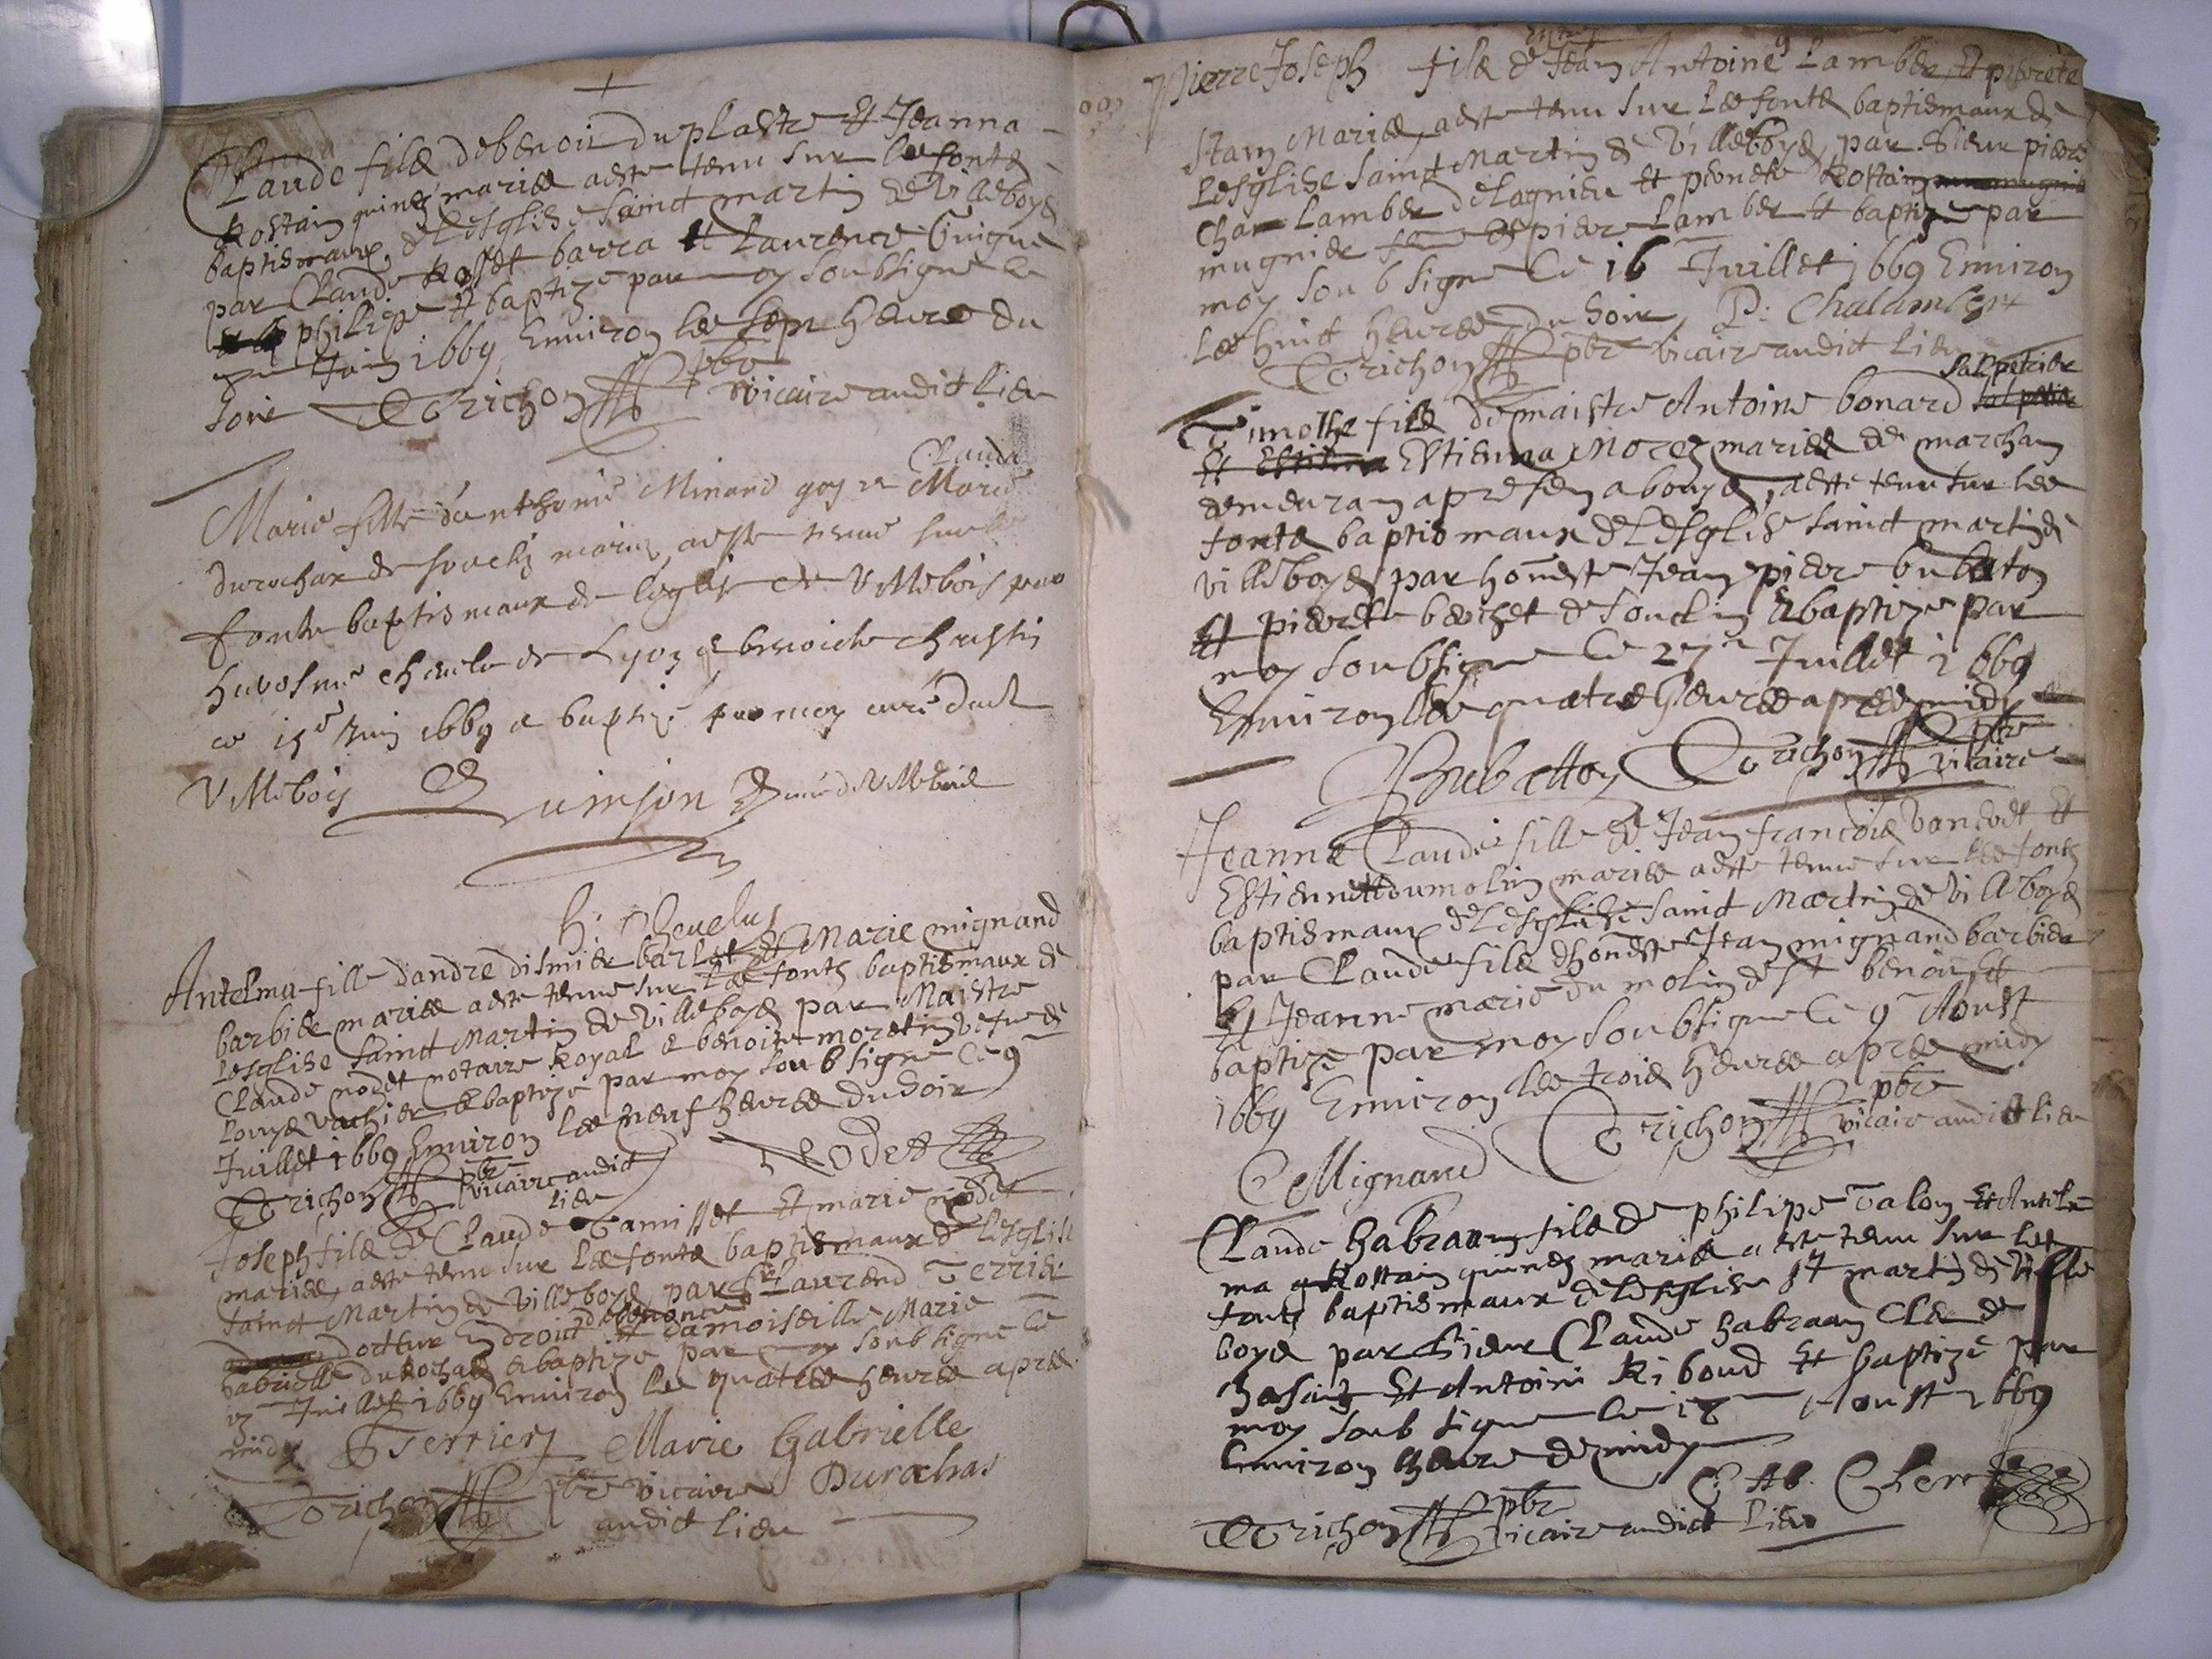 Claude filz de benoit du plastre et Jeanna
Rostain quinez mariez aeste tenu sur les fontz
baptismaux de Lesglise sainct martin de villeboys
par Claude Rosset barra et Laurence Guigue
philipe et baptize par moy soubsigne ce
Juin 1669 Environ les sept heures du
soir Trichon pbre vicaire audict lieu
Marie fille d'anthoine Minand et Clauda Marie
durochat de souclin mariez aeste tenue sur les
fontz baptismaux de leglise de Villebois par
hierosme chevelu de Lyon et benoicte christin
ce 15e Juin 1669 et baptisé par moy curé dud
Villebois Quinson curé de Villebois
h. Chevelus
Antelma fille dandre dismier barlet et Marie mignand
barbier mariez aeste tenue sur les fontz baptismaux de
Lesglise sainct Martin de villeboys par Maistre
Claude nodet notaire Royal et benoite moretin vefve de
Louys vachier et baptize par moy soubsigne ce 9
Juillet 1669 Environ les neuf heures du soir
Trichon pbre vicaire audict lieu Nodet
Joseph filz de Claude Tamisset et marie nodet
mariez, aeste tenu sur les fontz baptismaux de Lesglise
sainct Martin de villeboys, par Sr Laurend Terrier
docteur En droict de benonce et damoiselle Marie
Gabrielle du Rochat et baptize par moy soubsigne ce
Juillet 1669 Environ les quatre heures apres
midy Terrier Marie Gabrielle
Durochat
Trichon pbre vicaire
audict lieu
Pierre Joseph filz de Jean Antoine Lamber, et pierrete
stam Mariez, aeste tenu sur les fontz baptismaux de
Lesglise sainct Martin de Villeboys, par Sieur pierre
Cha Lamber de Lagnieu et pernete Rostain
mugnier fame de piere Lamber et baptize par
moy soubsigne Ce 16 Juillet 1669 Environ
Les huict heures du soir, P. Chalambert
Trichon pbre vicaire audict lieu
salpetrier
Timothe filz de maistre Antoine bonard
et Estienna Morez mariez de marchan
demeuran apresen a bouys, aeste tenu sur les
fontz baptismaux de Lesglise sainct martin de
villeboys par honeste Jean piere bubaton
et pierete berchet de souclin et baptize par
moy soubsigne ce 27 Juillet 1669
Environ les quatre heures apres midy
Bubatton Trichon pbre vicaire
Jeanne Claude fille de Jean francois et
Estiennette dumolin mariez aeste tenue sur les fontz
baptismaux de Lesglise sainct Martin de villeboys
par Claude filz dhoneste Jean mignand barbier
et Jeanne marie du molin de st benoist et
baptize par moy soubsigne Ce 9 Aoust
1669 Environ les trois heures apres midy
C Mignand Trichon pbre vicaire audict lieu
Claude habraam filz de philipe Talon et Antel
ma Rostain quinez mariez a este tenu sur les
fontz baptismaux de Lesglise st martin de ville
boys par Sieur Claude habraam Cler de
et Antoini Riboud et baptize par
moy soubsigne Ce Aoust 1669
Environ Lheure de midy
C. Ab. Clerc
Trichon pbre vicaire audict lieu